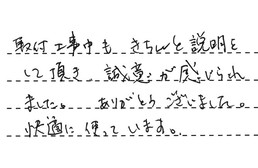 取付工事中も きちんと説明を
して頂き 誠意が感じられ
ました。 ありがとうございました。
快適に使っています。